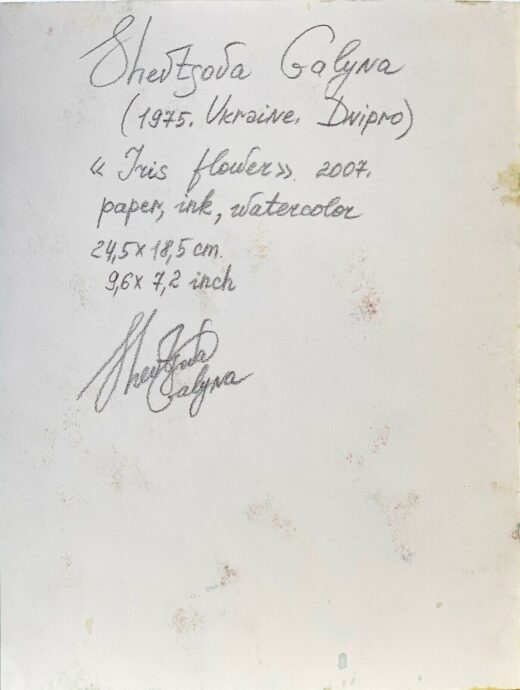 Shevtsova Galyna
(1975. Ukraine. Dnipro)
« Iris flower». 2007.
paper, ink, watercolor
24,5x18,5 cm.
9,6x 7,2 inch
Shevtsova
Galyna